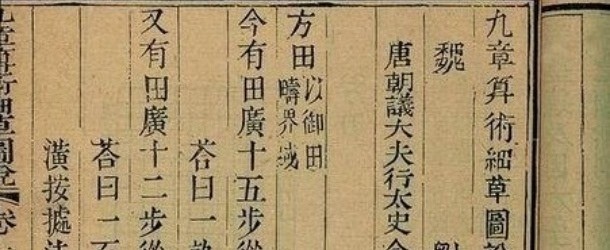 九章算術細草圖說
魏 劉
唐朝議大夫行太史令
方田以御田疇界域
今有田廣十五步從
荅曰一畝
又有田廣十二步從
荅曰一百
潢按據法
九章算術細草圖說卷